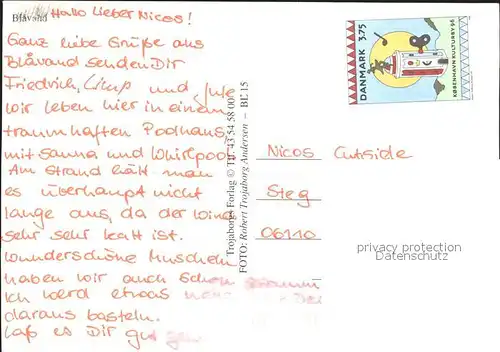 Blåvand
Hallo Lieber Nicos!
Ganz liebe Grüße aus
Blåvand senden Dir
Friedrich, Limp und Jule
wir leben hier in einem
traumhaften Poolhaus
mit Sauna und Whirlpool
Am Strand hält man
es überhaupt nicht
lange aus, da der Wind
sehr sehr kalt ist.
Wunderschöne Muscheln
haben wir auch schon
Ich werd etwas
daraus basteln.
Laß es Dir gut
Trojaborgs Forlag © Tlf. 43 54 58 00
FOTO: Robert Trojaborg Andersen – BL 15
DANMARK 3.75
KØBENHAVN KULTURBY 96
Nicos Cutside
Steg
06110
privacy protection
Datenschutz